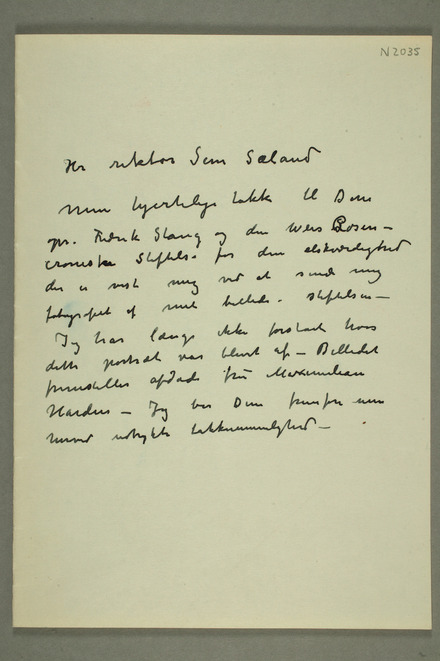 N2035
Hr rektor Sem Sæland
Min hjerteligste takk til Dem
pr. Fredrik Stang og den Weis Rosen–
croneske Stiftelse for den elskværdighed
der er vist mig ved at sende mig
fotografiet af mit billede i stiftelsen –
Jeg har længe ikke forstaat hvor
dette portræt var blevet af – Billedet
fremstiller afdøde fru Maximilian
Harden – Jeg ber Dem fremføre min
mest takknemmelighed –